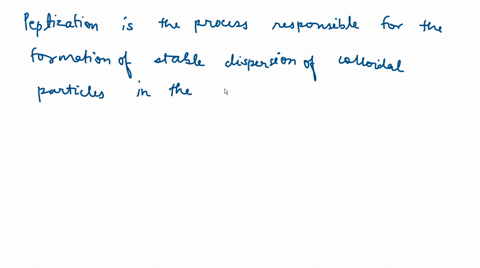 Peptization is the process responsible for the
formation of stable dispersion of colloidal
particles in the